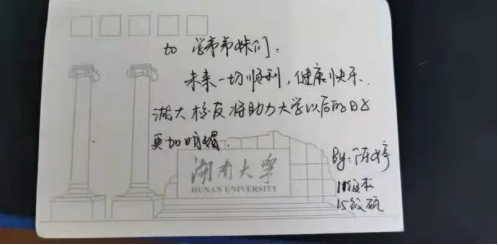 to 学弟弟妹们,
未来一切顺利,健康快乐.
湖大校友将助力大学以后的日子
更加明媚.
湖南大学
HUNAN UNIVERSITY
By: 陈